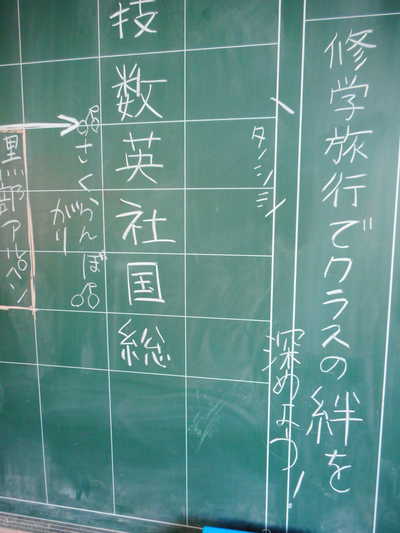 修学旅行でクラスの絆を
深めよう!
タノシミ
技
数
英
社
国
総
さくらんぼ
がり
黒部アルペン